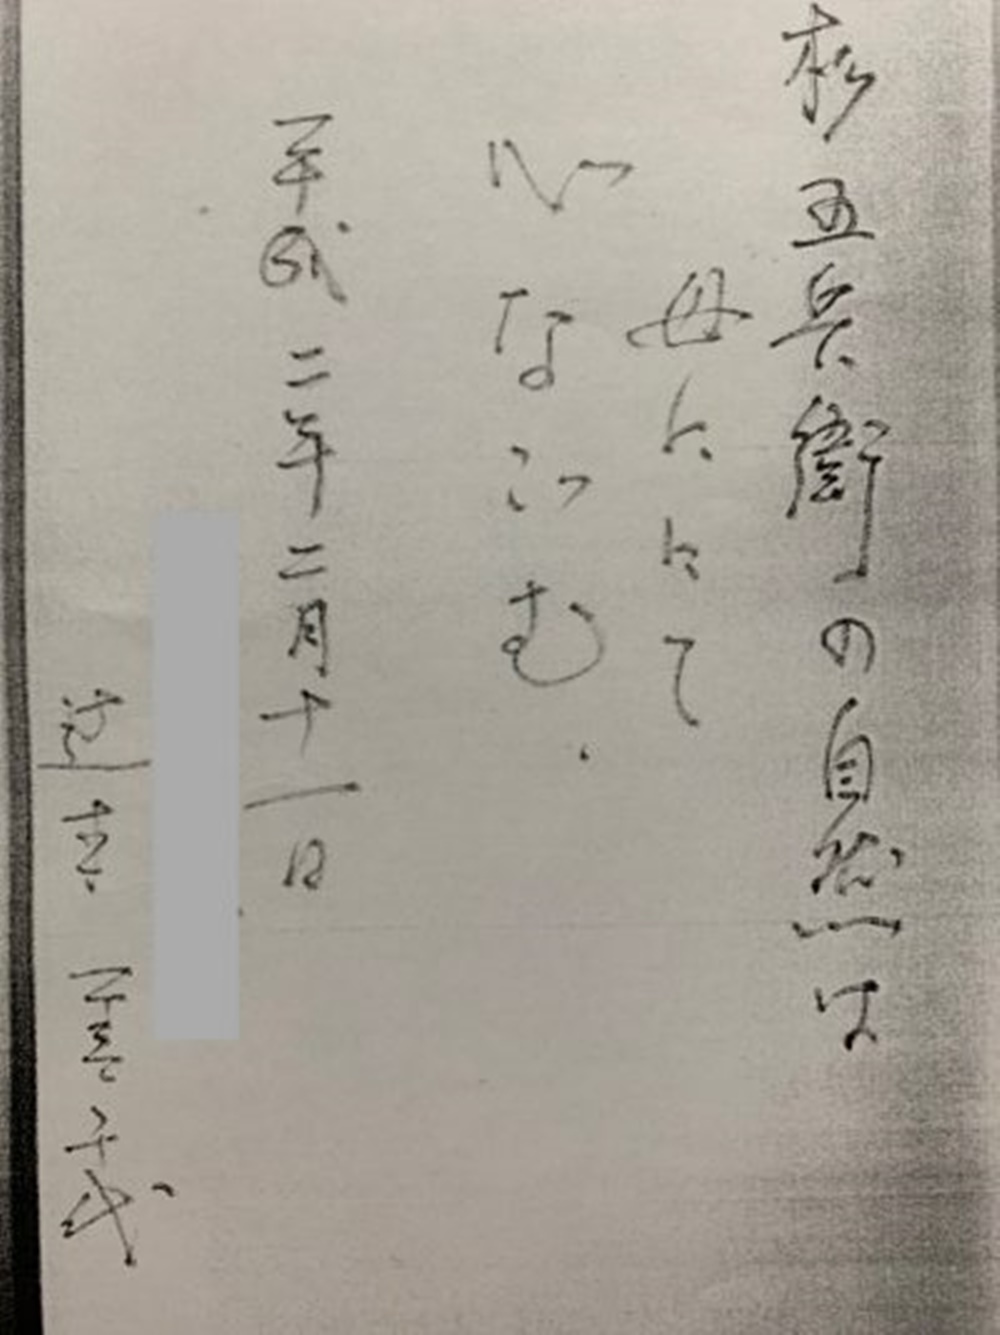 杉五兵衛の自然は
母ににて
心なごむ.
平成二年二月十一日